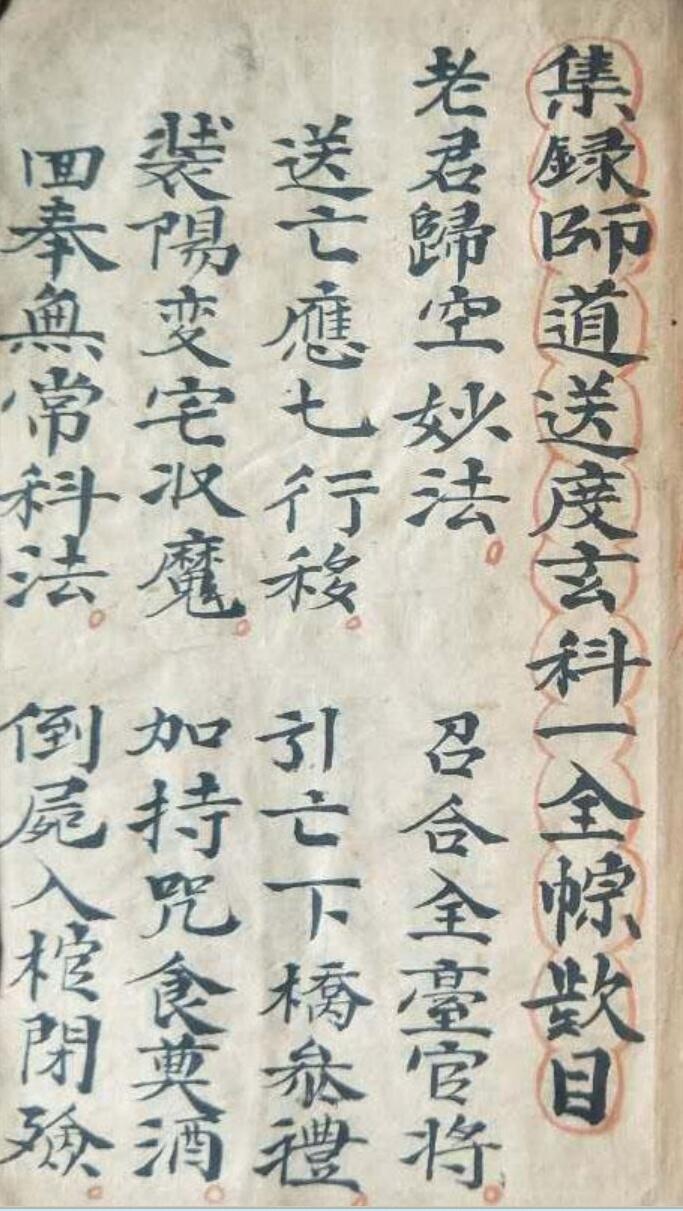 集録師道送度玄科一全㡓欵目
老君歸空妙法。 召合全臺官將。
送亡應七行移。 引亡下橋叅禮。
装陽変宅収魔。 加持咒食奠酒。
回奉無常科法。 倒屍入棺閉殮。